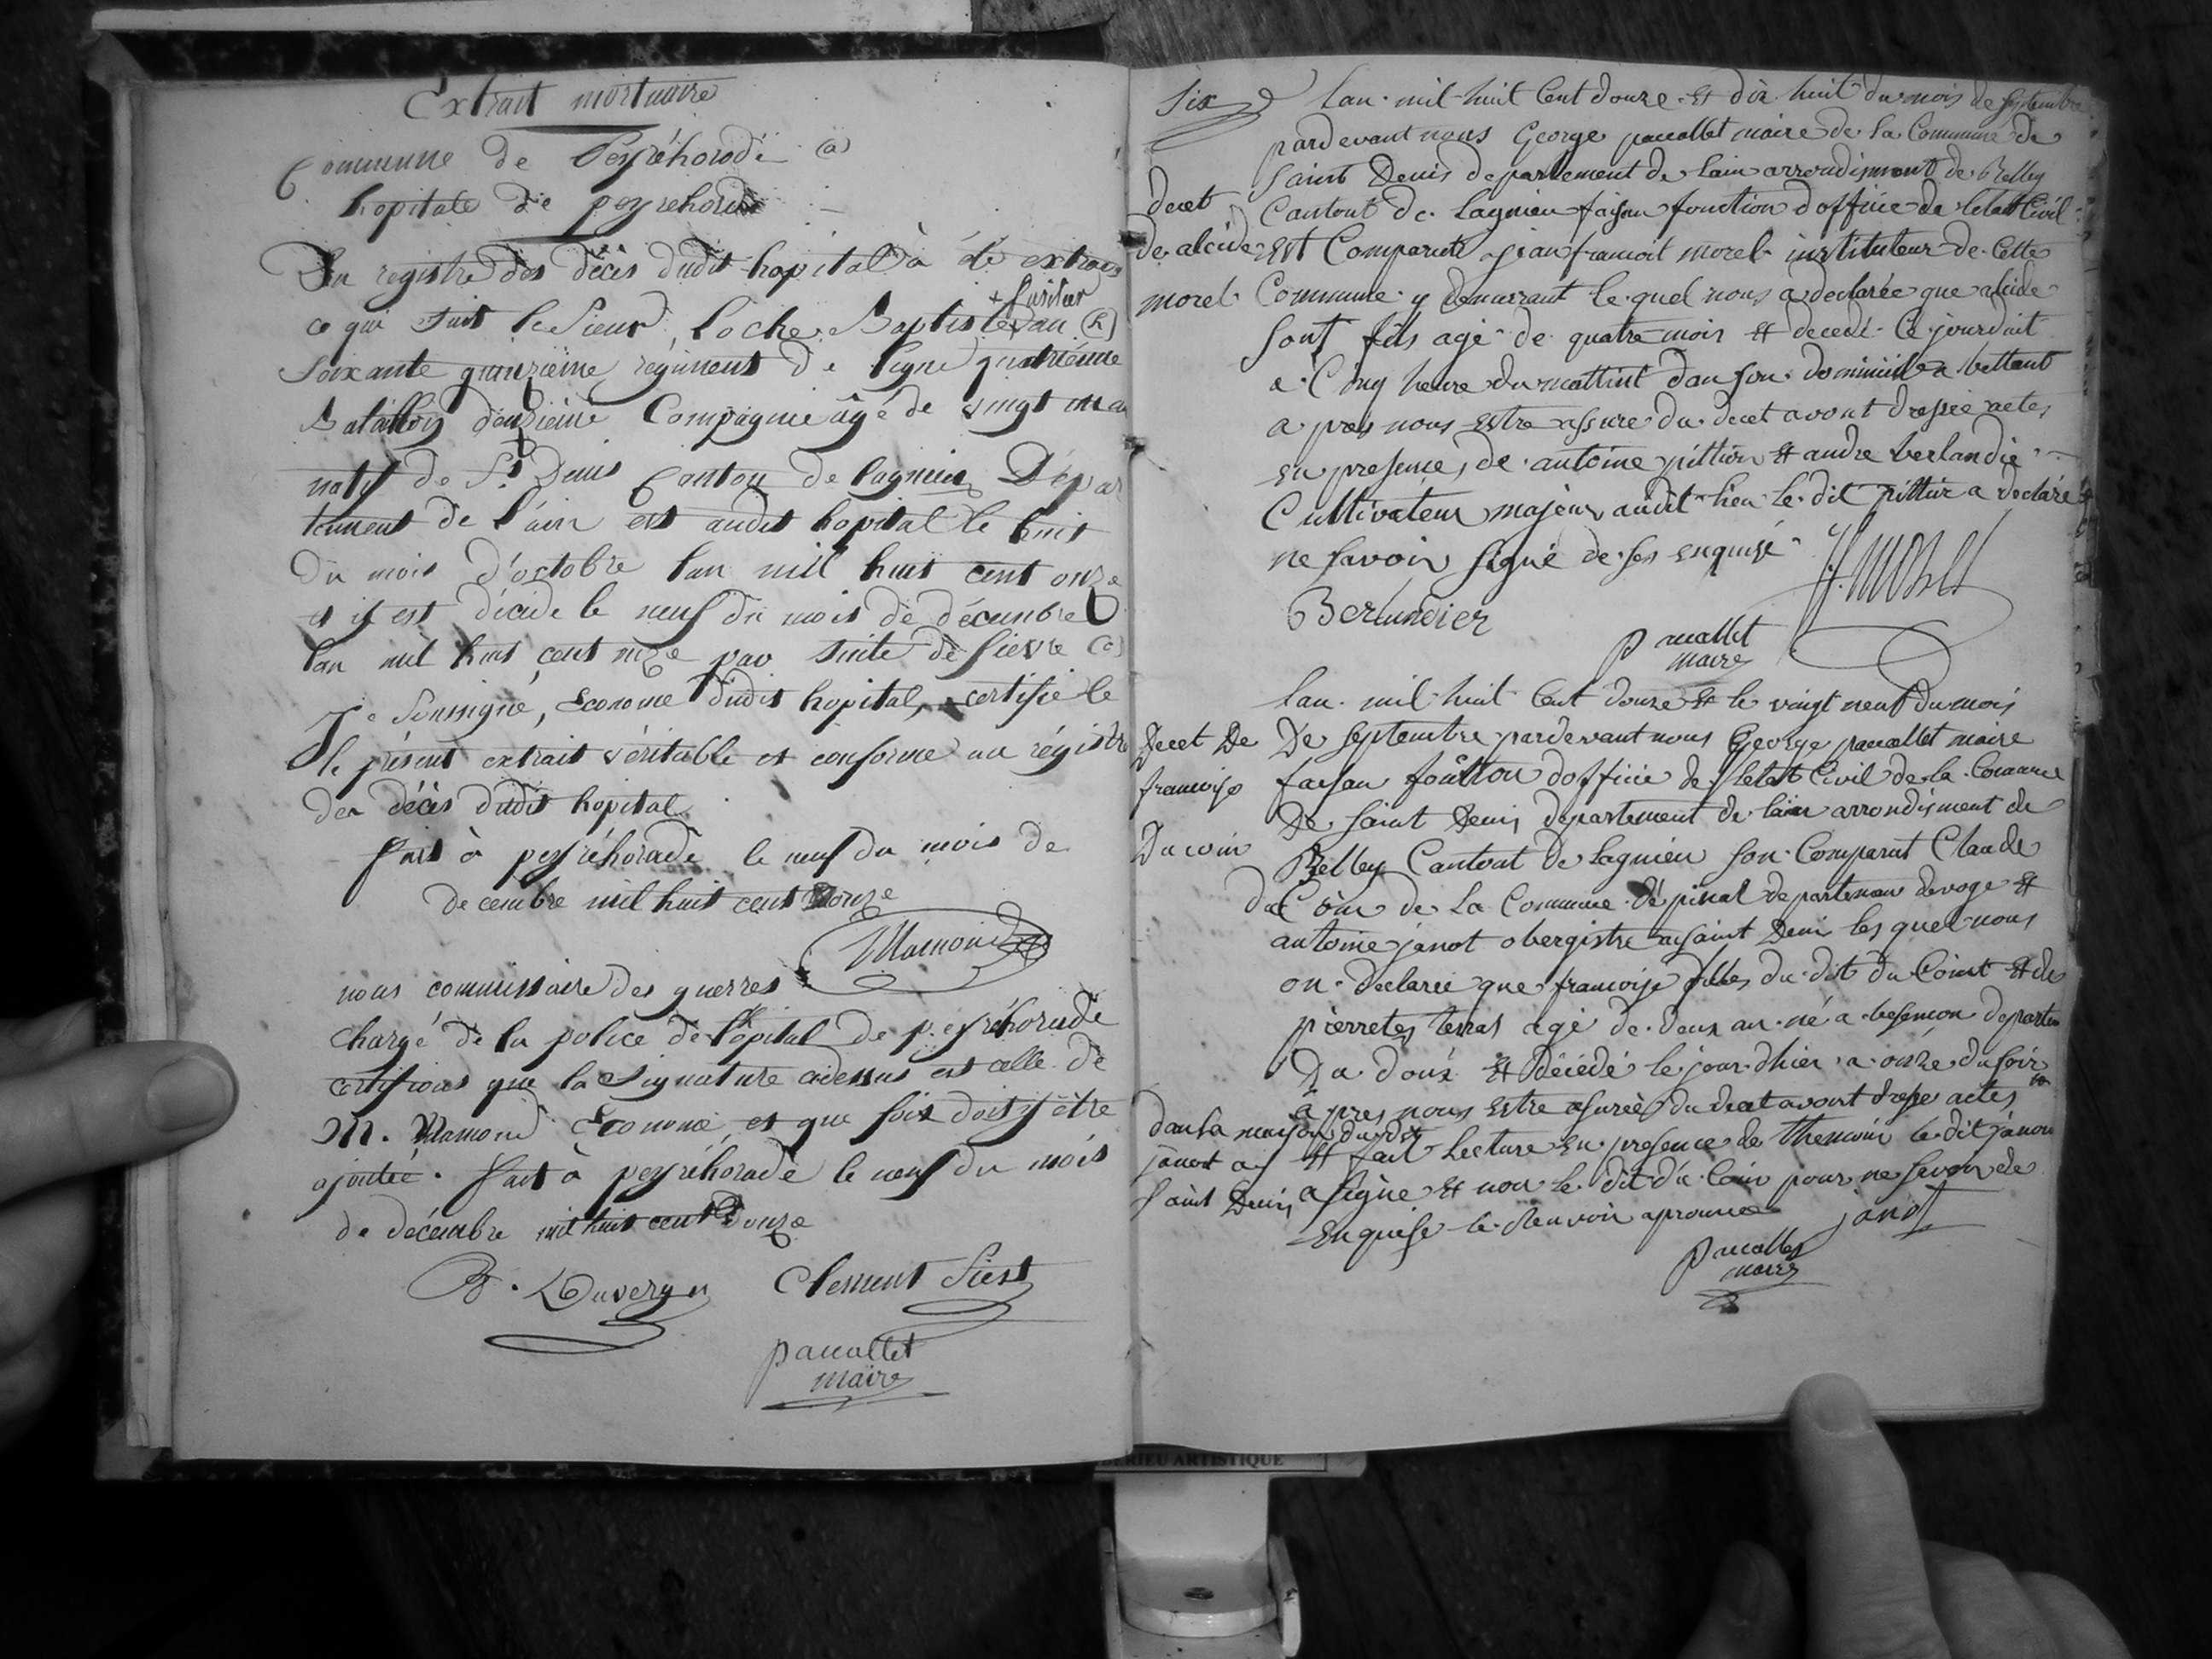 Extrait mortuaire
Commune de Peyréhorade (a)
hopitale de peyrehorade
Du registre des décès dudit hopital à été extrait
+ fusilier
ce qui suit le Sieur, Loche Baptiste + au (h)
Soixante quinzième régiment de ligne quatrième
Bataillon deuxième Compagnie âgé de vingt un an
natif de St Denis Canton de lagnieu Dépar
tement de l'ain est audit hopital le huit
du mois d'octobre l'an mil huit cent onze
et il est décédé le neuf du mois de décembre
l'an mil huit cent onze par suite de fievre (c)
Je Soussigné, Econome dudit hopital, certifie le
le présent extrait véritable et conforme au régistre
des décès dudit hopital
fait à peyréhorade le neuf du mois de
decembre mil huit cent douze
Mamond
nous commissaire des guerres
chargé de la police de l'hôpital de peyréhorade
certifions que la Signature cidessus est celle de
M. Mamond Econome et que foix doit y être
ajoutée. fait à peyréhorade le neuf du mois
de décembre mil huit cent douze
B. Duvergn Clement Siest
paucallet
maire
Six
lan mil huit Cent douze et dix huit du mois de septembre
pardevant nous George paucallet maire de la Commune de
Saint Denis departement de lain arrondisment de Belley
decet Cantont de Lagnieu faisan fonction dofficie de letat Civil
de alcide est Comparut jean francoit morel instituteur de Cette
morel Commune y demurrant le quel nous a declarée que alcide
sont fils agé de quatre mois et decedé Ce jourduit
a Cinq heure du mattint dan son domiciile a bettant
a pres nous estre assure du decet avont dressée actes
en presence de antoine pittion et andre berlandie
Cultivateur majeur audit lieu le dit pittion a declaré
ne savoir signé de ses enquisé
J. f. morel
Berlundier
paucallet
maire
lan mil huit Cent douze et le vingt neuf du mois
Decet De De septembre pardevant nous George paucallet maire
francoise faisan dofficie de letat Civil de la Commune
De saint Denis departement de lain arrondisment de
Ducoin Belley Cantont de Lagnieu son Comparut Claude
du Coin de La Commune dépinal departemen devoge et
antoine janot obergistre a saint Denis les quel nous
on declarée que francoise filles du dit du Coint et de
pierretes terras agé de deux an né a besencon departem
Du doux et décédé le jour dhier a onze du soir
a pres nous estre asurée du decet avont dresse actes
dan la maison du dit et fait Lecture en presence de themoin le dit janon
janot a a signe et non le dit du Coin pour ne savoir de
saint Denis enquise le renvoir aprouvee janot
paucallet
maire
DERIEU ARTISTIQUE